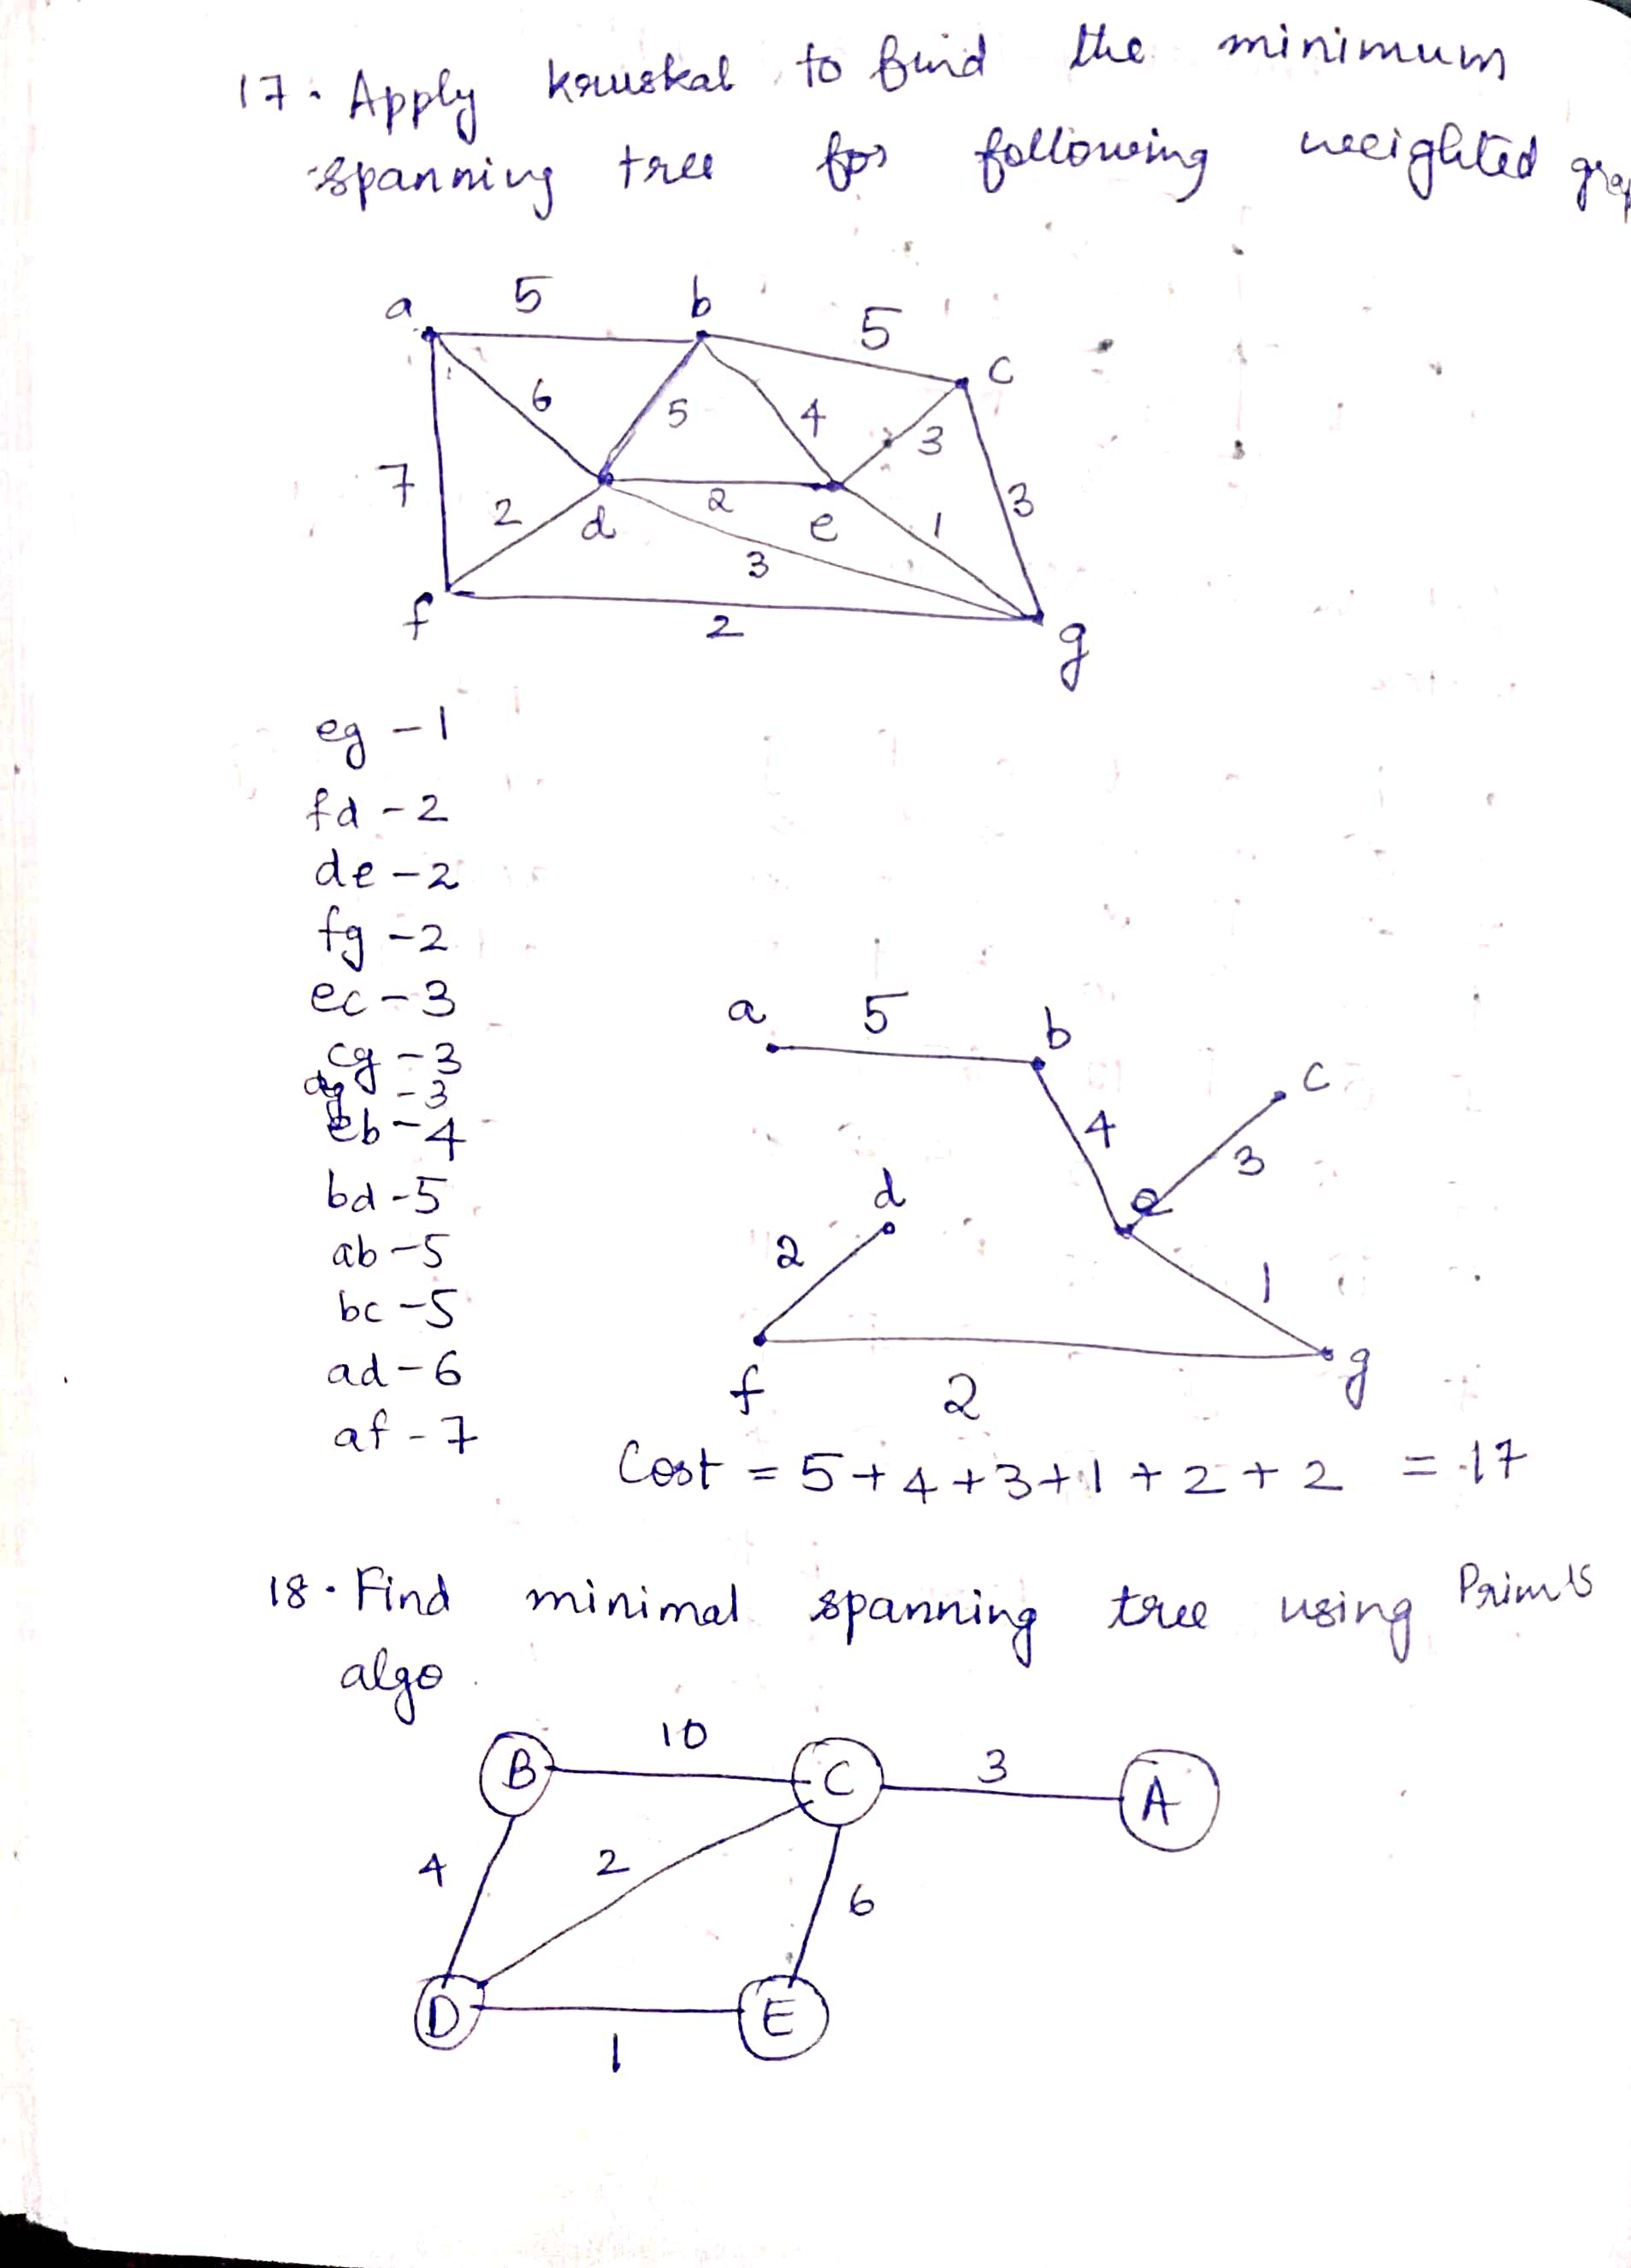 17. Apply kruskal to find the minimum
spanning tree for following weighted
a 5 b 5 c
6 5 4 3
7 2 d 2 e 1 3
3
f 2 g
eg - 1
fd - 2
de - 2
fg - 2
ec - 3
cg - 3
dg - 3
eb - 4
bd - 5
ab - 5
bc - 5
ad - 6
af - 7
a 5 b c
4 3
d e
2 1
f 2 g
Cost = 5 + 4 + 3 + 1 + 2 + 2 = 17
18. Find minimal spanning tree using Prim's
algo
B 10 C 3 A
4 2 6
D 1 E